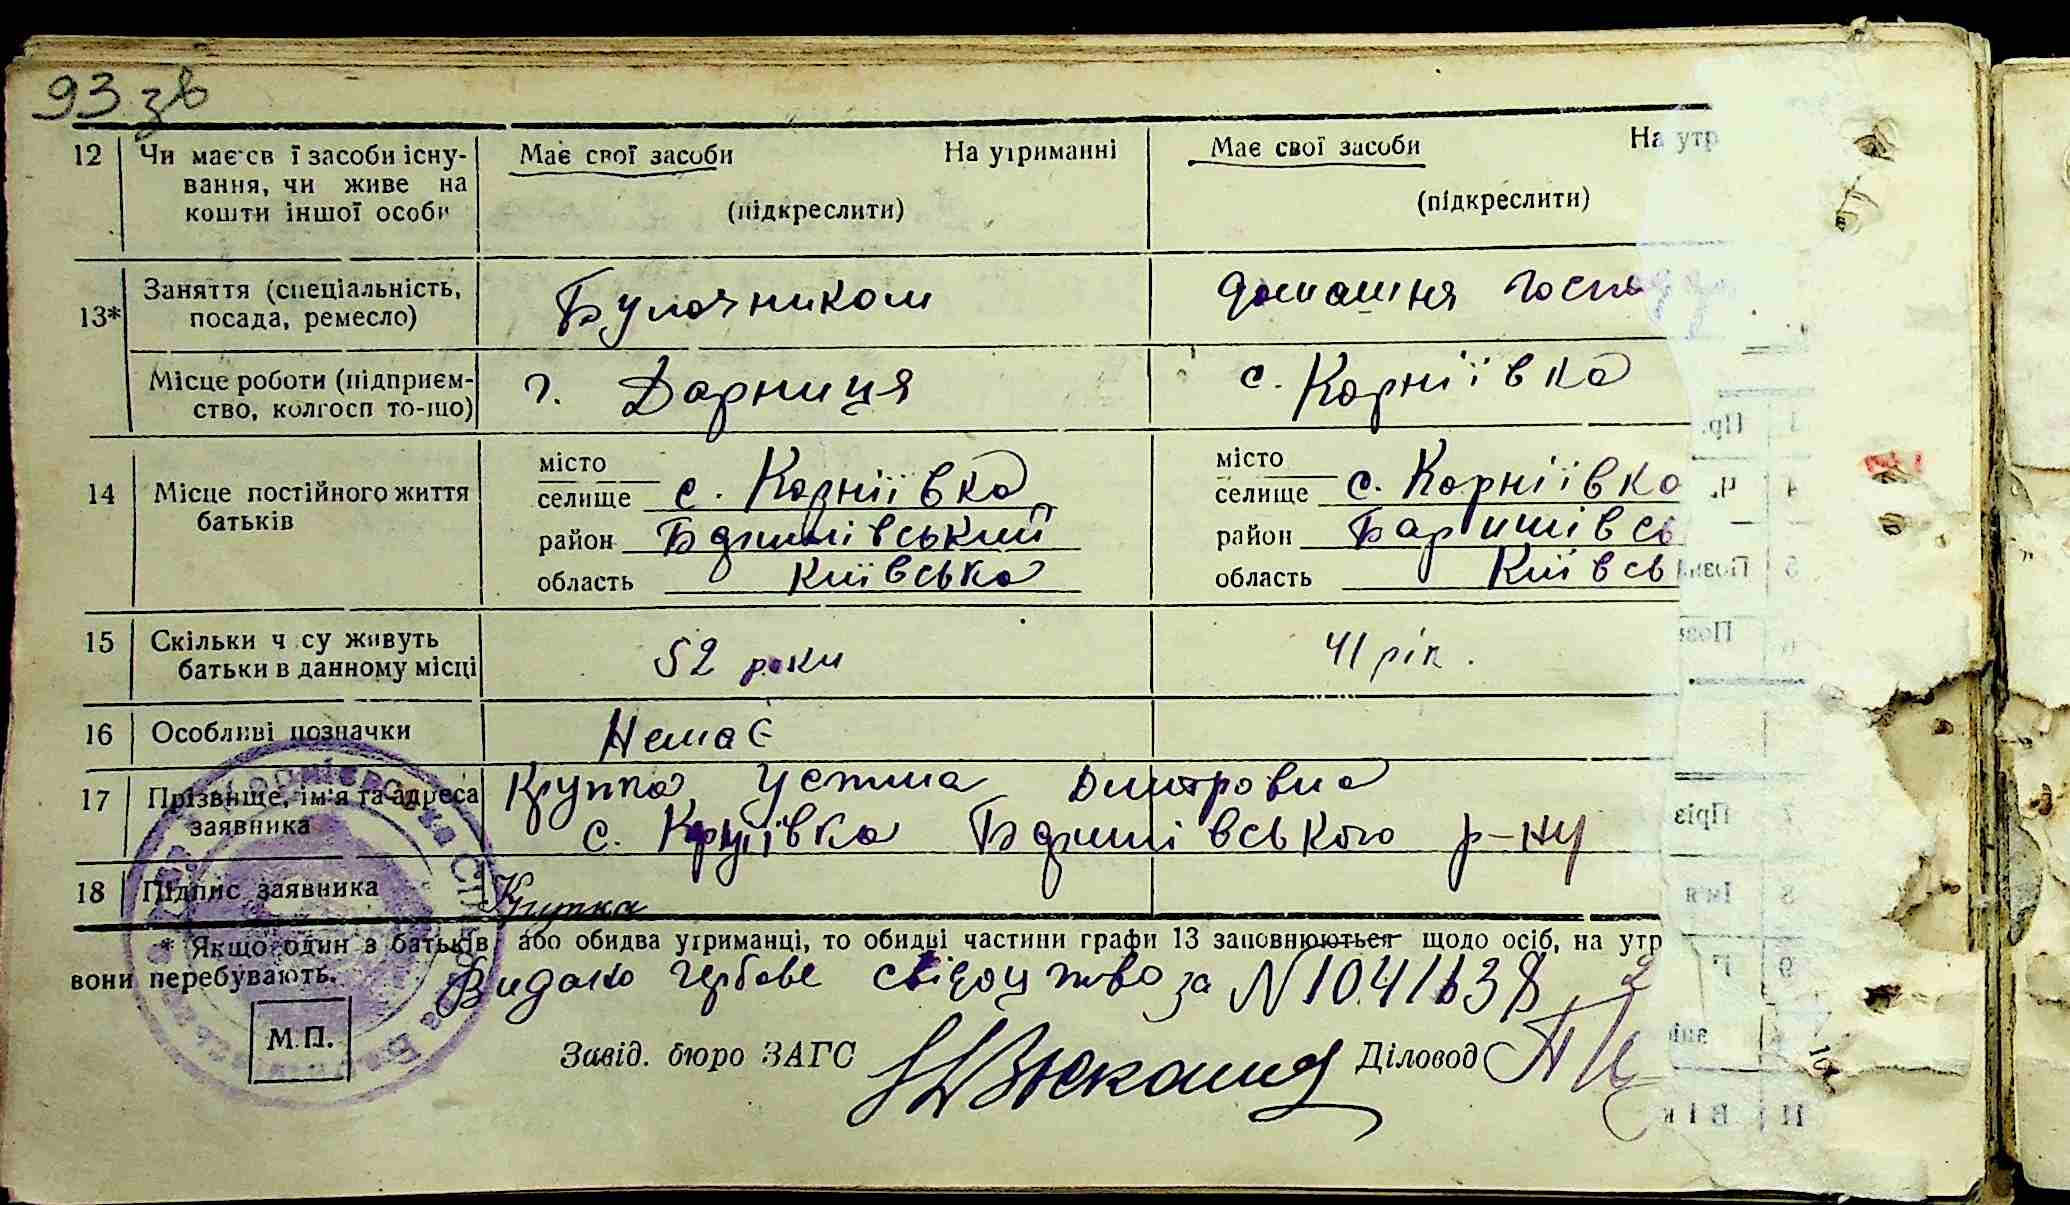 93 зв
12 Чи має св ї засоби існу- Має свої засоби На утриманні Має свої засоби На утр
вання, чи живе на
кошти іншої особи (підкреслити) (підкреслити)
13* Заняття (спеціальність, Булочником домашня госпо
посада, ремесло)
Місце роботи (підприєм- г. Дарниця с. Корніївка
ство, колгосп то-що)
14 Місце постійного життя
батьків
місто місто
селище с. Корніївка селище с. Корніївка
район Баришівський район Баришівсь
область Київська область Київсь
15 Скільки ч су живуть 52 роки 41 рік.
батьки в данному місці
16 Особливі позначки Немає
17 Прізвище, ім'я та адреса Крупка Устина Дмитровна
заявника с. Корніївка Баришівського р-ну
18 Підпис заявника Крупка
* Якщо один з батьків або обидва утриманці, то обидві частини графи 13 заповнюються щодо осіб, на утр
вони перебувають.
Видано гербове свідоцтво за N 1041638
М.П. Завід. бюро ЗАГС Діловод